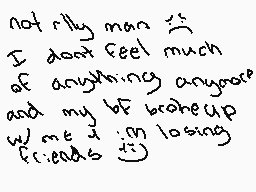 not rlly man
I dont feel much
of anything anymore
and my bf brokeup
w/ me & im losing
friends